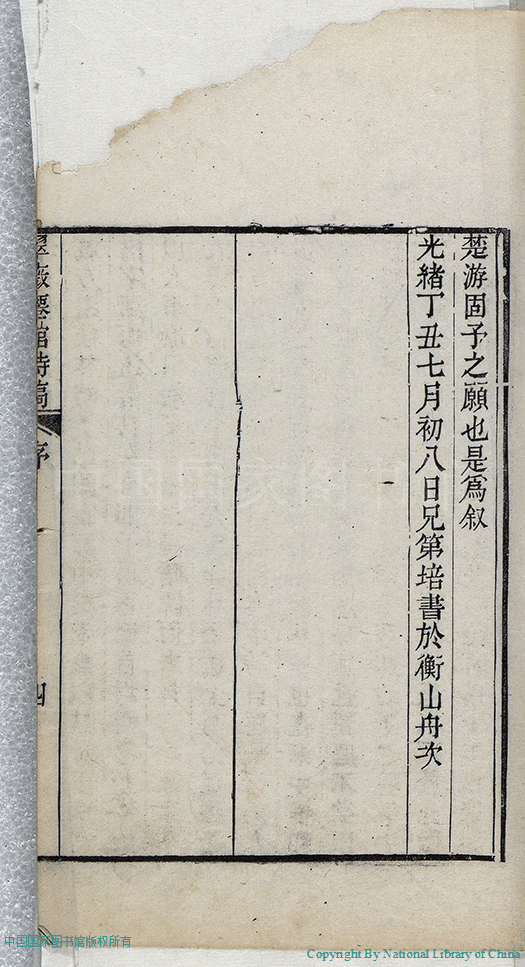 楚游固予之願也是為叙
光緒丁丑七月初八日兄第培書於衡山舟次
序
四
中国国家图书馆版权所有
Copyright By National Library of China